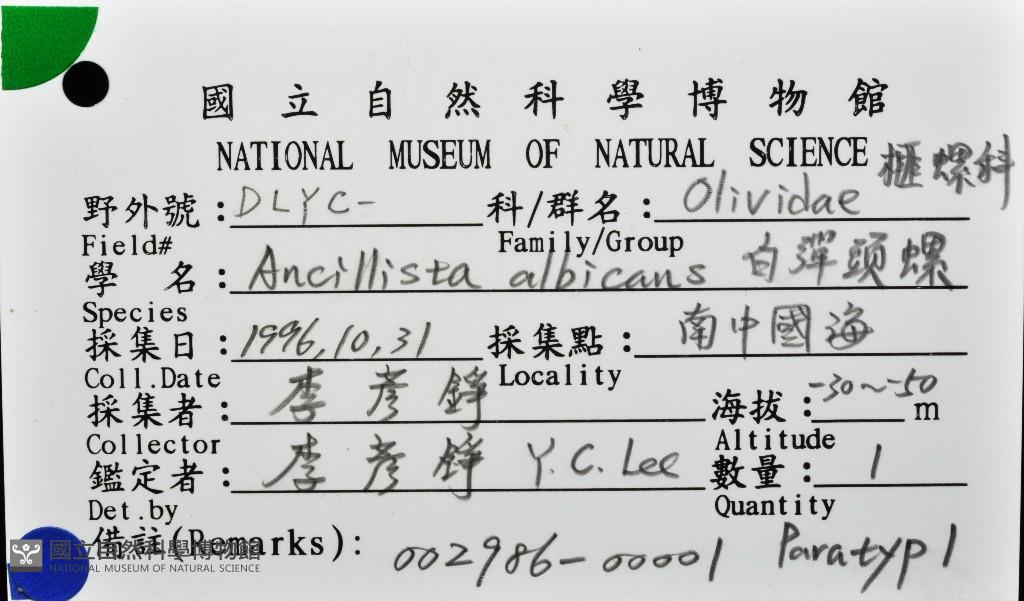 國立自然科學博物館
NATIONAL MUSEUM OF NATURAL SCIENCE 榧螺科
野外號: DLYC- 科/群名: Olividae
Field# Family/Group
學 名: Ancillista albicans 白彈頭螺
Species
採集日: 1996,10,31 採集點: 南中國海
Coll.Date Locality
採集者: 李彥錚 海拔: -30~-50 m
Collector Altitude
鑑定者: 李彥錚 Y.C. Lee 數量: 1
Det.by Quantity
備註(Remarks): 002986-00001 Paratyp1
國立自然科學博物館
NATIONAL MUSEUM OF NATURAL SCIENCE